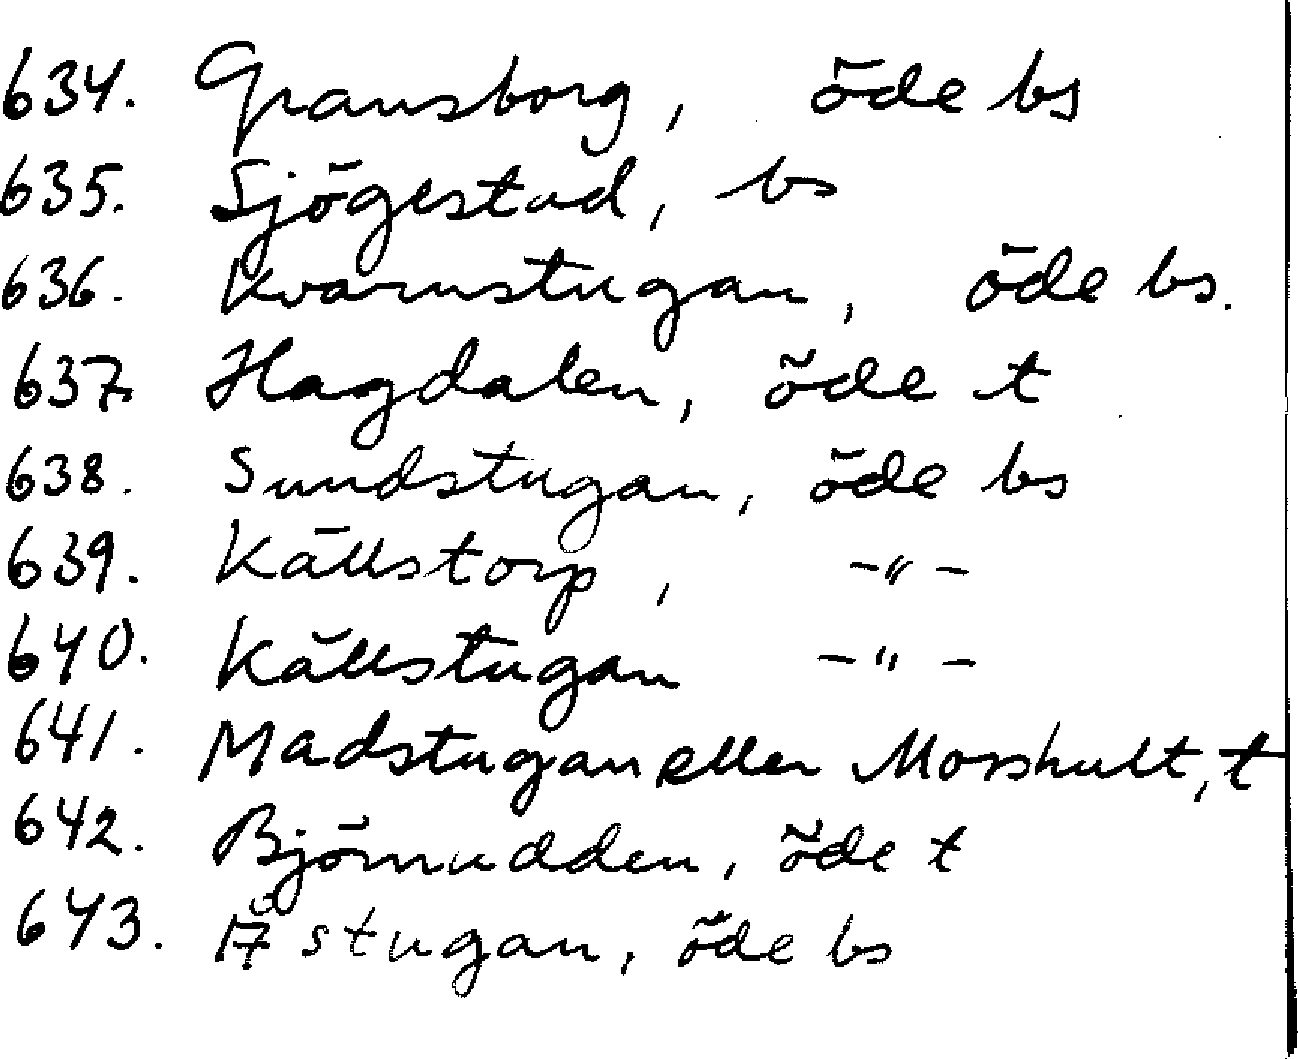 634. Gransborg, öde bs
635. Sjögestad, bs
636. Kvarnstugan, öde bs.
637. Hagdalen, öde t
638. Sundstugan, öde bs
639. Källstorp, -"-
640. Källstugan -"-
641. Madstugan eller Morshult, t
642. Björnudden, öde t
643. Åstugan, öde bs